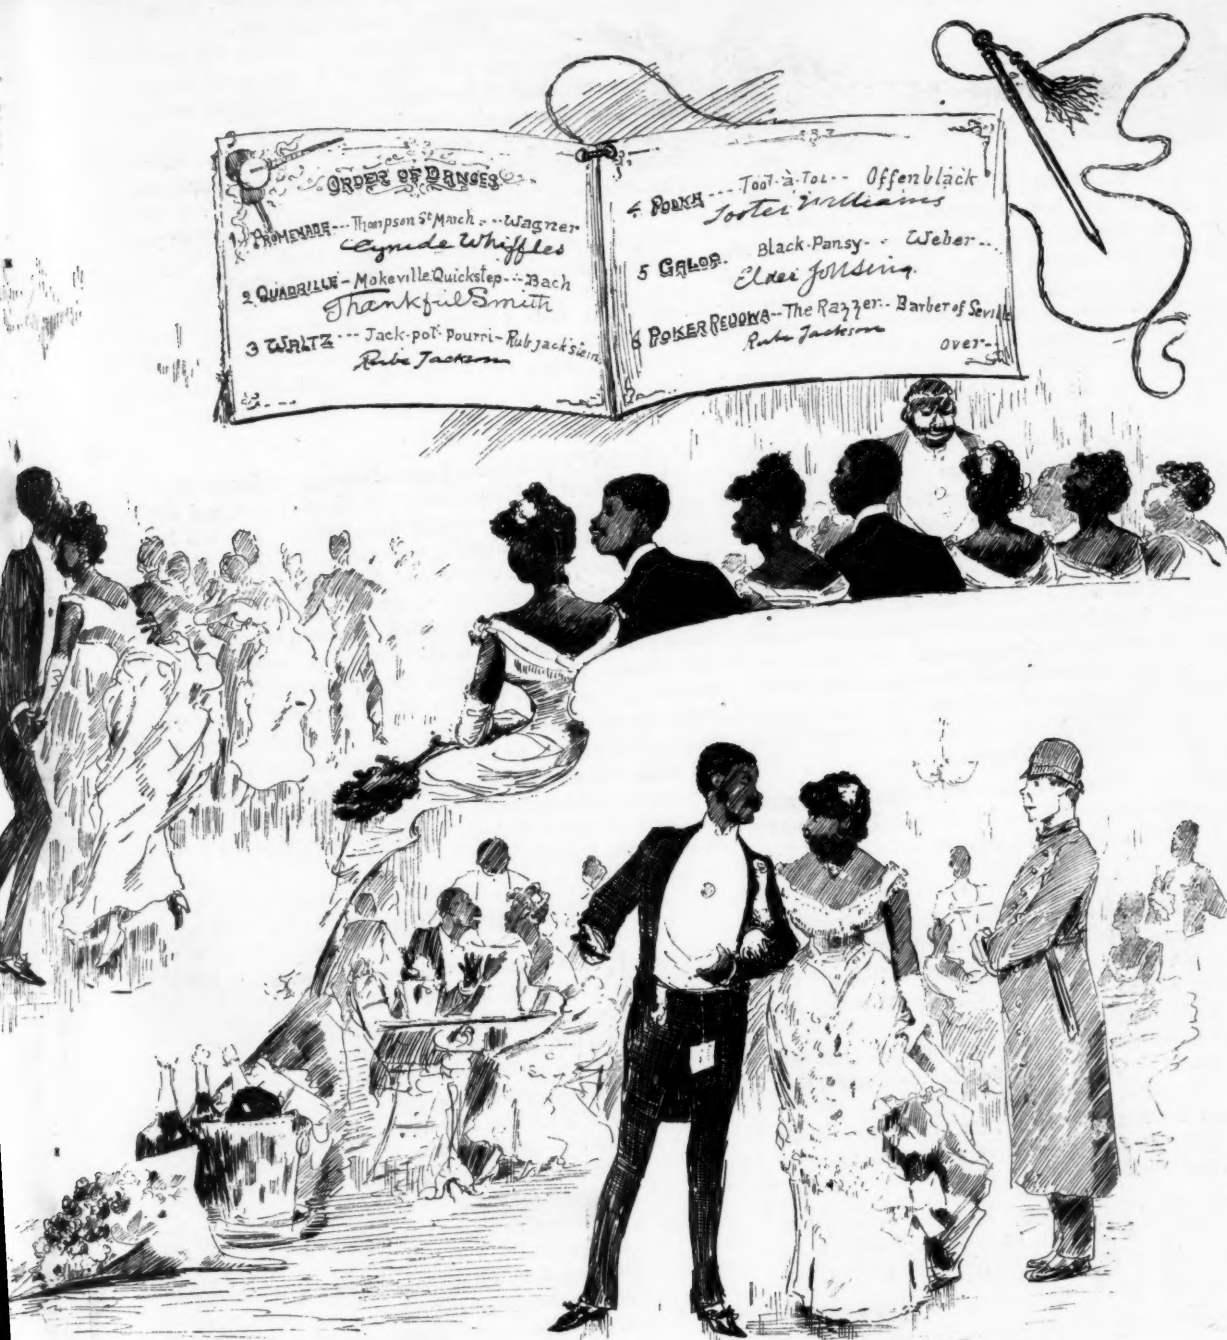 ORDER OF DANCES
1 PROMENADE --- Thompson St March --- Wagner
Cynide Whiffles
2 QUADRILLE - Mokeville Quickstep --- Bach
Thankful Smith
3 WALTZ ---- Jack-pot-Pourri - Rubjackstein
Rube Jackson
4 POLKA ---- Toot-à-Toi -- Offenblack
Tooter Williams
5 GALOP. Black-Pansy - - Weber ---
Elder Jonsing.
6 POKER REDOWA -- The Razzer -- Barber of Seville
Rube Jackson
over -